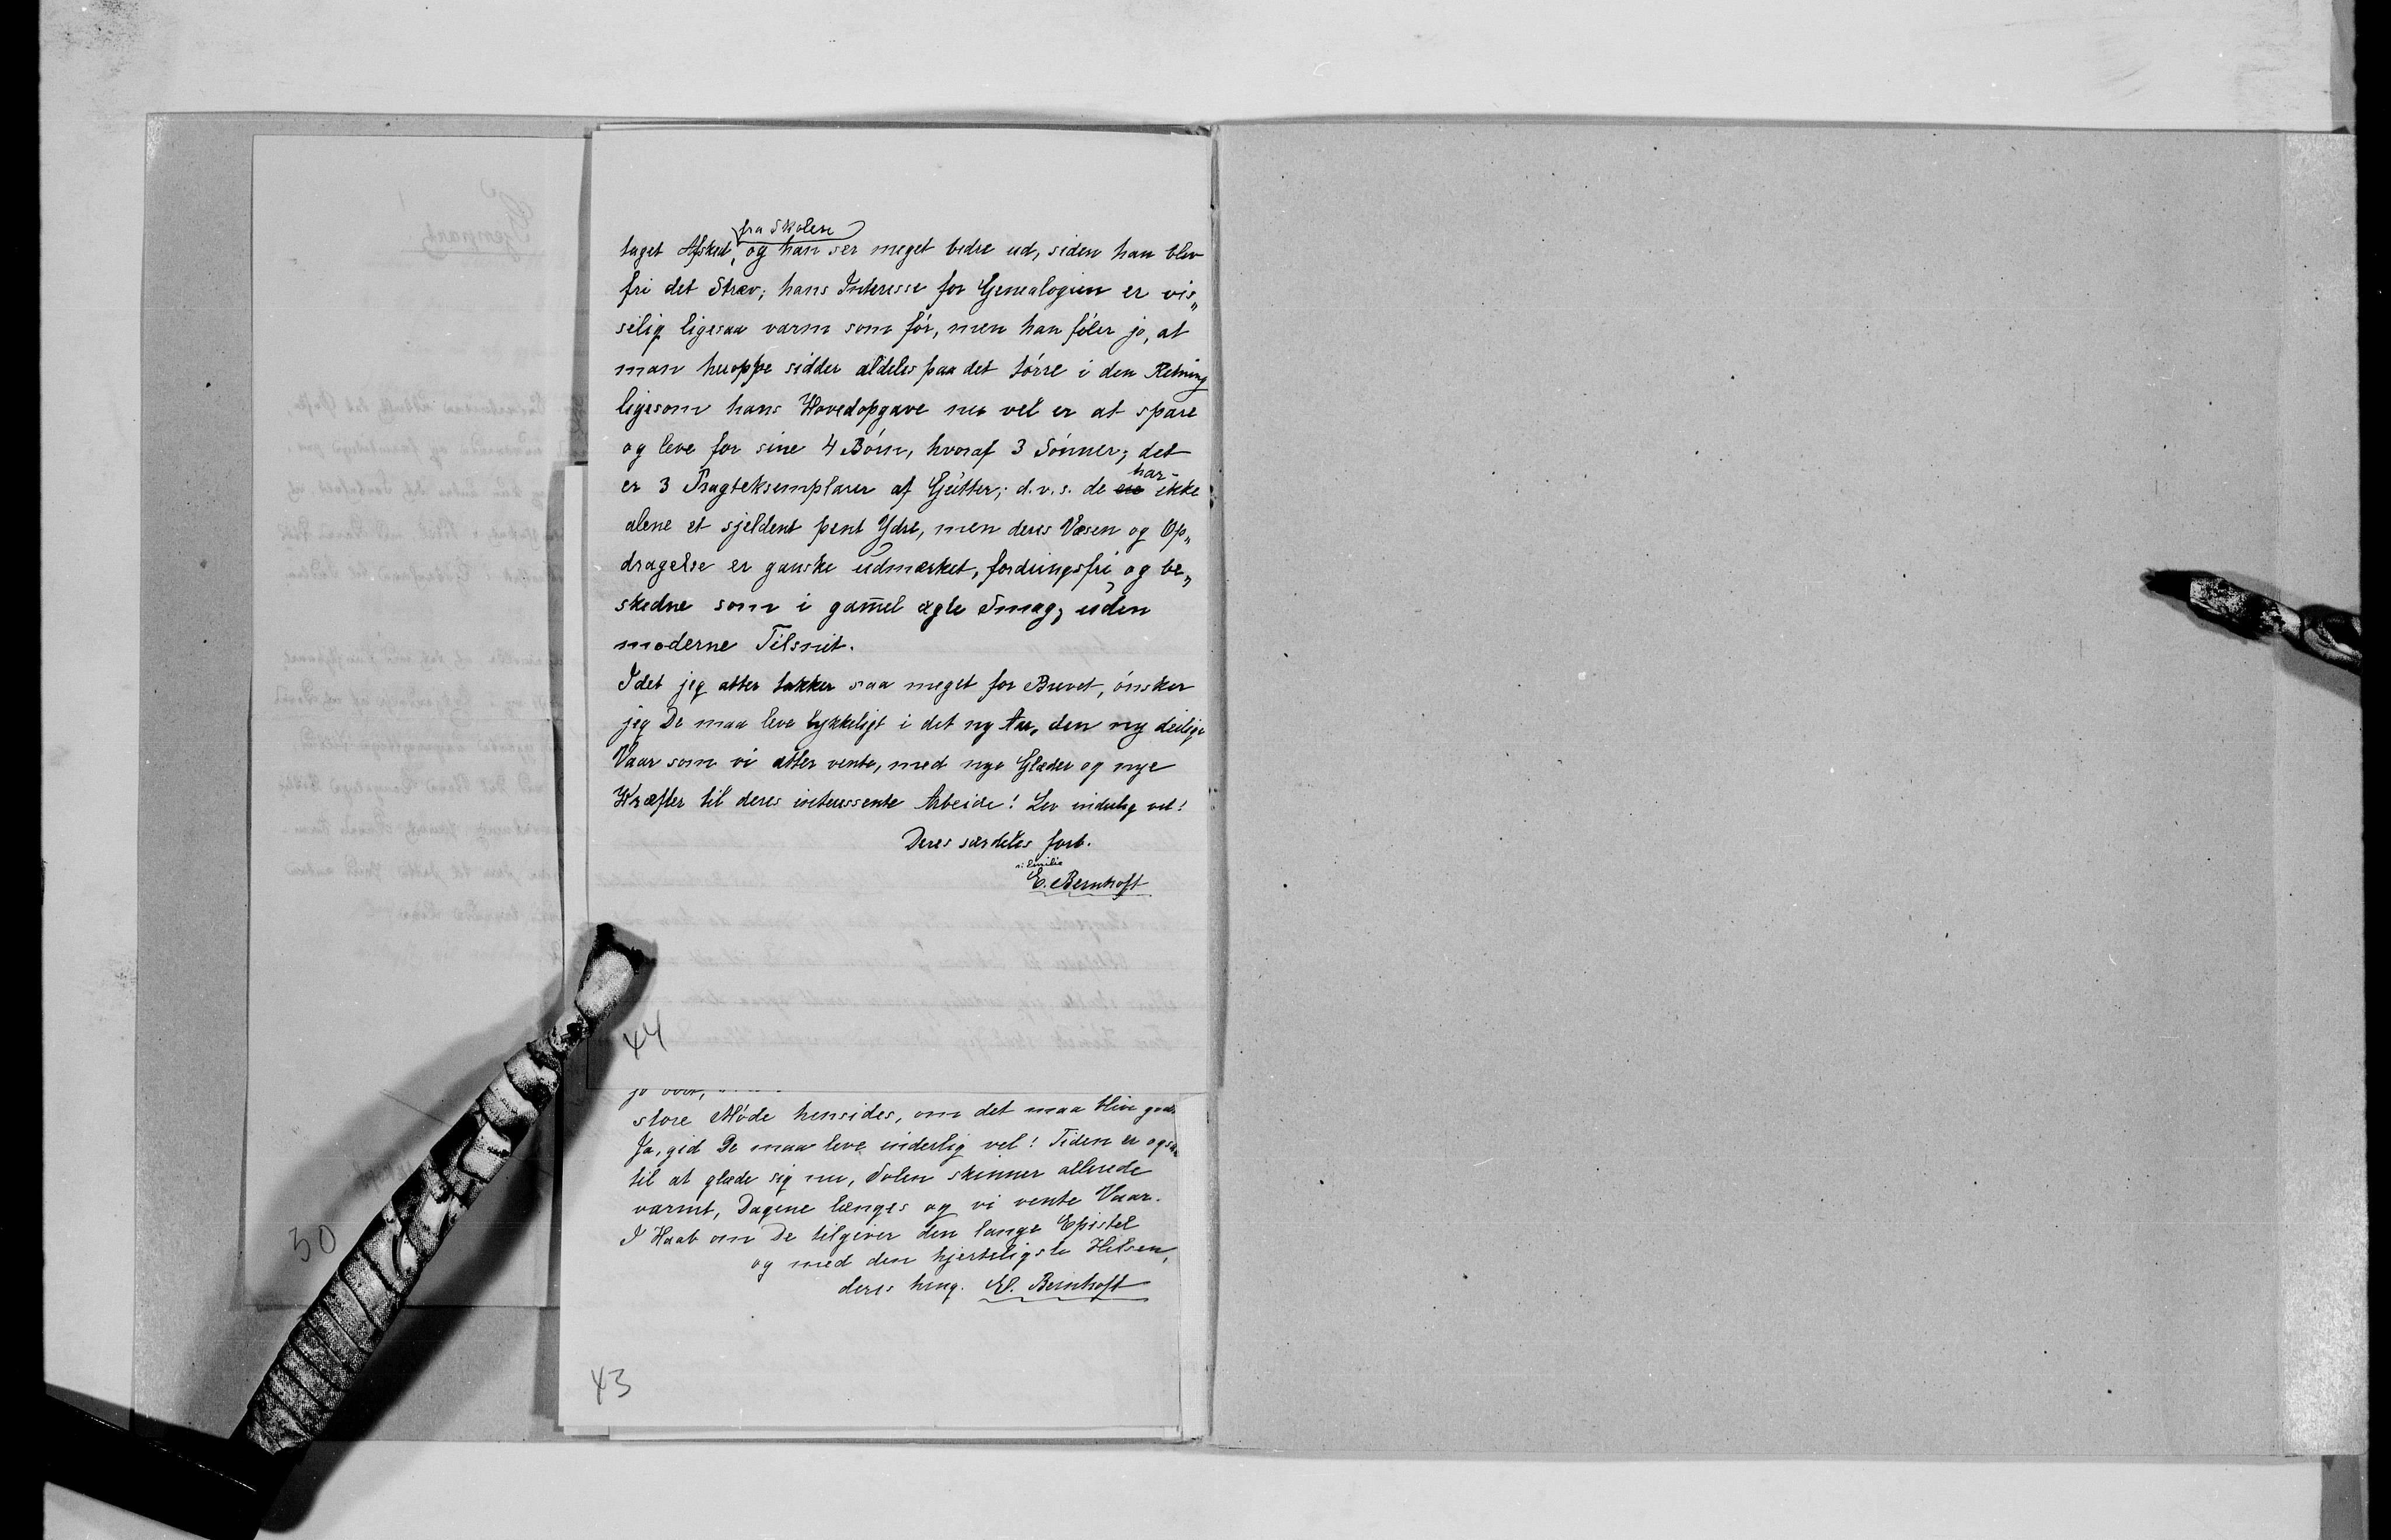 fra Skolen
taget Afsked, og han ser meget bedre ud, siden han blev
fri det Stræv; hans Interesse for Genealogien er vis„
selig ligesaa varm som før, men han føler jo, at
man heroppe sidder aldeles paa det tørre i den Retning
ligesom hans Hovedopgave nu vel er at spare
og leve for sine 4 Børn, hvoraf 3 Sønner; det
har
er 3 Pragteksemplarer af Gutter; d.v.s. de ere ikke
alene et sjeldent pent Ydre, men deres Væsen og Op„
dragelse er ganske udmærket, fordringsfri og be„
skedne som i gam̅el ægte Smag, uden
moderne Tilsnit.
Idet jeg atter takker saa meget for Brevet, ønsker
jeg De maa leve lykkeligt i det ny Aar, den ny deilige
Vaar som vi atter vente, med nye Glæder og nye
Kræfter til deres interessente Arbeide! Lev inderlig vel!
Deres særdeles forb.
Emilie
E. Bernhoft
44
store Møde hensides, om det maa blive godt
Ja, gid De maa leve inderlig vel! Tiden er ogsaa
til at glæde sig nu, Solen skinner allerede
varmt, Dagene længes og vi vente Vaar.
I Haab om De tilgiver den lange Epistel
og med den hjerteligste Hilsen,
deres heng. E. Bernhoft
43
30